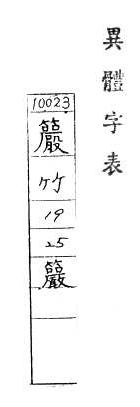 異體字表
10023
竹
19
25